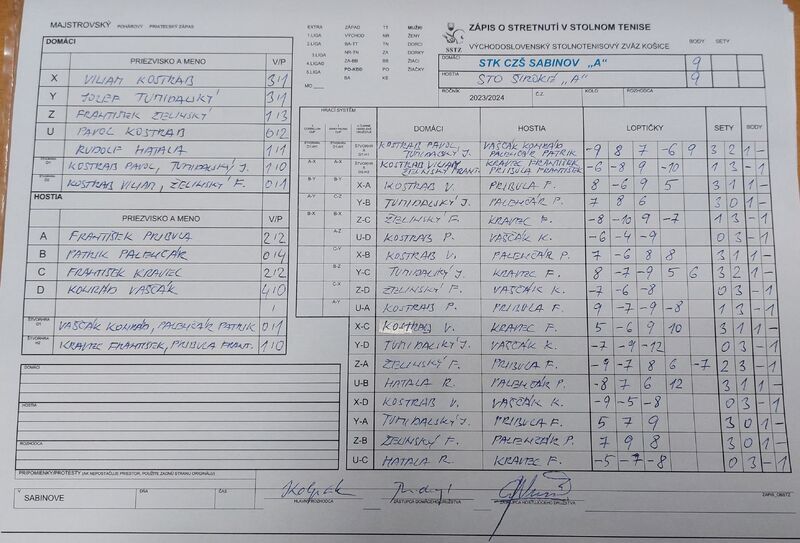 MAJSTROVSKÝ POHÁROVÝ PRIATEĽSKÝ ZÁPAS
DOMÁCI
PRIEZVISKO A MENO V/P
X VILIAM KOSTRAB 3/1
Y JOZEF TUMIDALSKÝ 3/1
Z FRANTIŠEK ŽELINSKÝ 1/3
U PAVOL KOSTRAB 0/2
RUDOLF HATALA 1/1
ŠTVORHRA D1 KOSTRAB PAVOL, TUMIDALSKÝ J. 1/0
D2 KOSTRAB VILIAM, ŽELINSKÝ F. 0/1
HOSTIA
PRIEZVISKO A MENO V/P
A FRANTIŠEK PRIBULA 2/2
B PATRIK PALENČÁR 0/4
C FRANTIŠEK KRAVEC 2/2
D KONRÁD VAŠČÁK 4/0
ŠTVORHRA D1 VAŠČÁK KONRÁD, PALENČÁR PATRIK 0/1
ŠTVORHRA H2 KRAVEC FRANTIŠEK, PRIBULA FRANT. 1/0
DOMÁCI
HOSTIA
ROZHODCA
PRIPOMIENKY/PROTESTY (AK NEPOSTAČUJE PRIESTOR, POUŽITE ZADNÚ STRANU ORIGINÁLU)
V SABINOVE DŇA ČAS
HLAVNÝ ROZHODCA
ZÁSTUPCA DOMÁCEHO DRUŽSTVA
ZÁSTUPCA HOSŤUJÚCEHO DRUŽSTVA
EXTRA ZÁPAD TT MUŽI
1.LIGA VÝCHOD NR ŽENY
2.LIGA BA-TT TN DORCI
3.LIGA NR-TN ZA DORKY
4.LIGA ZA-BB BB ŽIACI
5.LIGA PO-KE PO ŽIAČKY
BA KE
SSTZ
ZÁPIS O STRETNUTÍ V STOLNOM TENISE
VÝCHODOSLOVENSKÝ STOLNOTENISOVÝ ZVÄZ KOŠICE BODY SETY
DOMÁCI STK CZŠ SABINOV „A" 9
HOSTIA STO ŠIROKÉ „A" 9
ROČNÍK 2023/2024 Č.Z. KOLO ROZHODCA
HRACÍ SYSTÉM
DOMÁCI HOSTIA LOPTIČKY SETY BODY
KOSTRAB PAVOL, TUMIDALSKÝ J. VAŠČÁK KONRÁD PALENČÁR PATRIK -9 8 7 -6 9 3 2 1 -
KOSTRAB VILIAM ŽELINSKÝ FRANT. KRAVEC FRANTIŠEK PRIBULA FRANTIŠEK -6 -8 9 -10 1 3 - 1
X-A KOSTRAB V. PRIBULA F. 8 -6 9 5 3 1 1 -
Y-B TUMIDALSKÝ J. PALENČÁR P. 7 8 6 3 0 1 -
Z-C ŽELINSKÝ F. KRAVEC F. -8 -10 9 -7 1 3 - 1
U-D KOSTRAB P. VAŠČÁK K. -6 -4 -9 0 3 - 1
X-B KOSTRAB V. PALENČÁR P. 7 -6 8 8 3 1 1 -
Y-C TUMIDALSKÝ J. KRAVEC F. 8 -7 -9 5 6 3 2 1 -
Z-D ŽELINSKÝ F. VAŠČÁK K. -7 -6 -8 0 3 - 1
U-A KOSTRAB P. PRIBULA F. 9 -7 -9 -8 1 3 - 1
X-C KOSTRAB V. KRAVEC F. 5 -6 9 10 3 1 1 -
Y-D TUMIDALSKÝ J. VAŠČÁK K. -7 -9 -12 0 3 - 1
Z-A ŽELINSKÝ F. PRIBULA F. -9 -7 8 6 -7 2 3 - 1
U-B HATALA R. PALENČÁR P. -8 7 6 12 3 1 1 -
X-D KOSTRAB V. VAŠČÁK K. -9 -5 -8 0 3 - 1
Y-A TUMIDALSKÝ J. PRIBULA F. 5 7 9 3 0 1 -
Z-B ŽELINSKÝ F. PALENČÁR P. 7 9 8 3 0 1 -
U-C HATALA R. KRAVEC F. -5 -7 -8 0 3 - 1